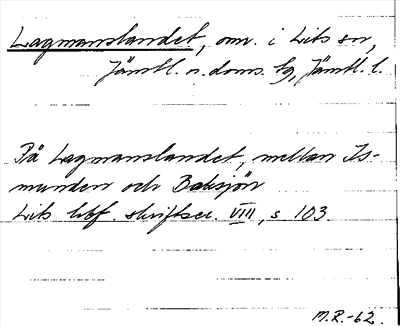 Lagmanslandet, omr. i Lits sn,
Jämtl. n. doms. tg, Jämtl. l.
På Lagmanslandet, mellan Is-
munden och Baksjön
Lits hbf. skriftser. VIII, s 103.
M.R.-62.